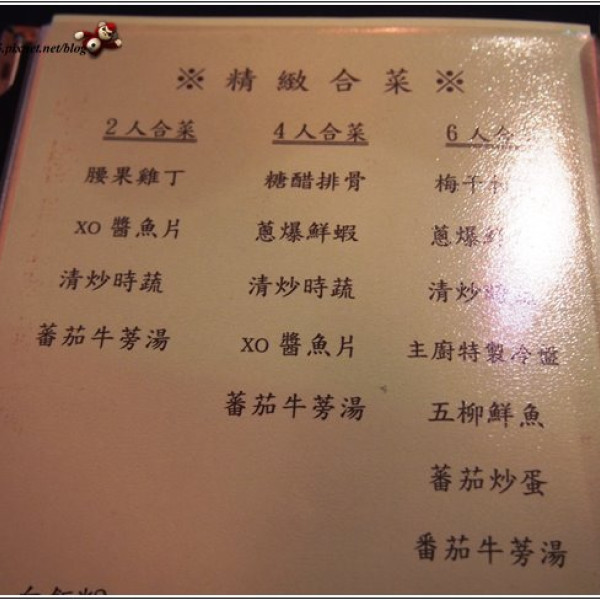 .pixnet.net/blog
※ 精緻合菜 ※
2人合菜
腰果雞丁
XO 醬魚片
清炒時蔬
蕃茄牛蒡湯
4人合菜
糖醋排骨
蔥爆鮮蝦
清炒時蔬
XO 醬魚片
蕃茄牛蒡湯
6人合
梅干
蔥爆鮮
清炒時蔬
主廚特製冷盤
五柳鮮魚
蕃茄炒蛋
番茄牛蒡湯